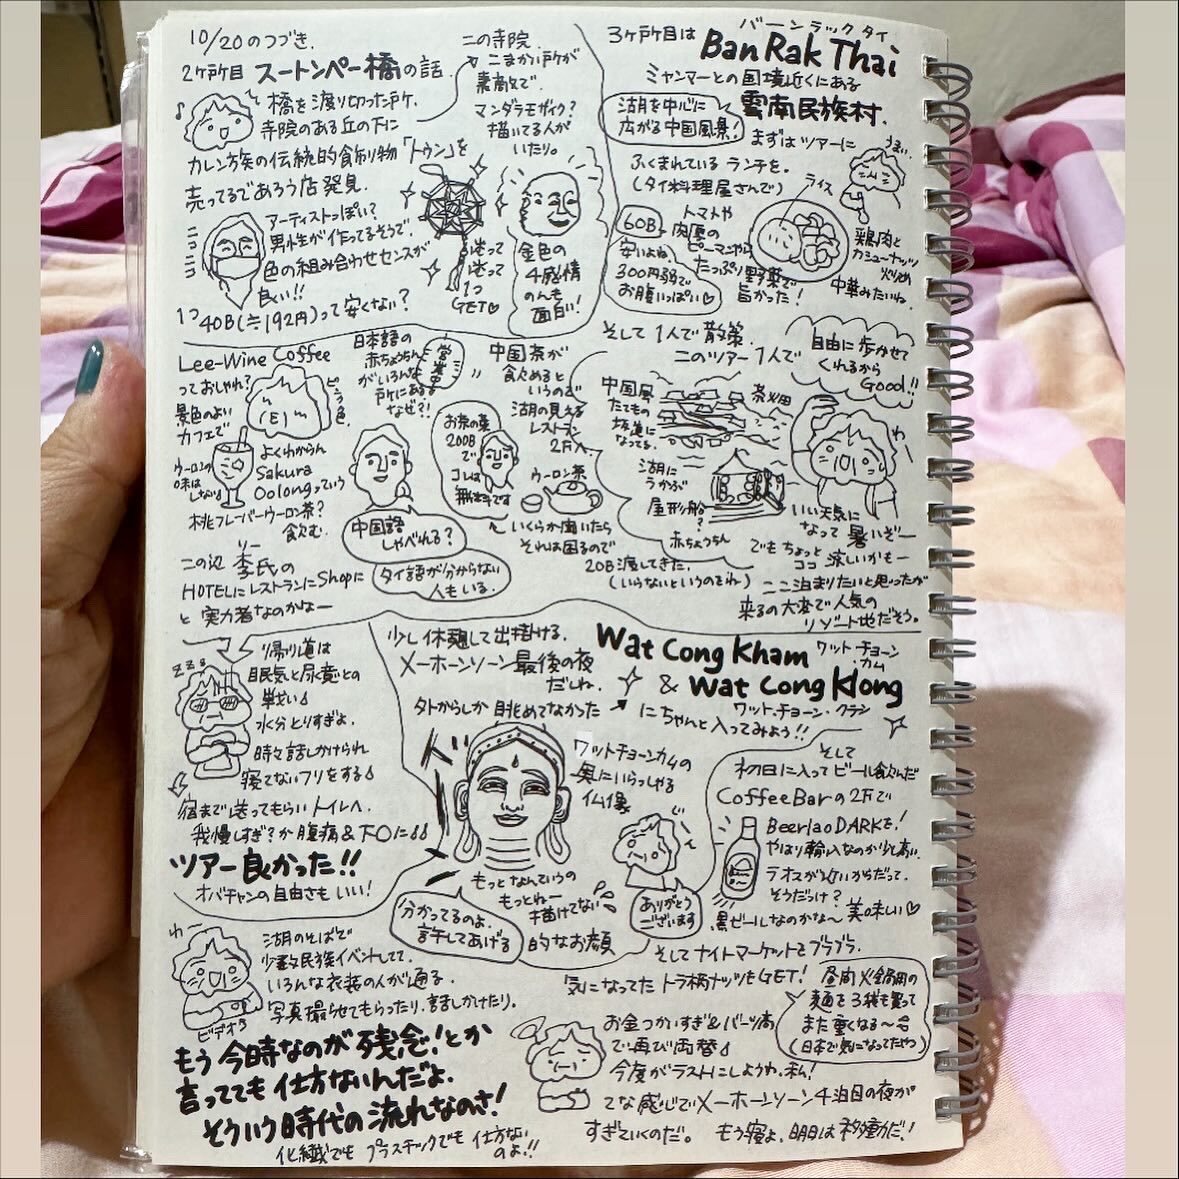 10/20のつづき.
2ヶ所目 スートンペー橋の話.
橋を渡り切った所.
寺院のある丘の下に
カレン族の伝統的食制物「トゥン」を
売ってるであろう店発見.
ニコニコ
アーティストっぽい?
男性が作ってるそうで.
色の組み合わせセンスが
良い!!
1つ40B(≒192円)って安くない?
迷って
迷って
1つ
GET♡
この寺院.
こまかい所が
素敵で.
マンダラモザイク?
描いてる人が
いたり。
金色の
4感情
のんも
面白い!
3ヶ所目は
バーンラックタイ
Ban Rak Thai
ミャンマーとの国境近くにある
雲南民族村.
湖を中心に
広がる中国風景!
まずはツアーに
ふくまれているランチを。
(タイ料理屋さんで)
うまい
ライス
60B
安いよね
300円弱で
お腹いっぱい♡
トマトや
肉厚の
ピーマンやら
たっぷり野菜で
旨かった!
鶏肉と
カシューナッツ
炒め
中華みたいね
Lee-Wine Coffee
っておしゃれ?
景色のよい
カフェで
ウーロンの
味は
しない
よくわからん
Sakura
Oolongっていう
桃フレーバーウーロン茶?
飲む.
この辺 李氏の
リー
HOTELにレストランにShopに
と 実力者なのかなー
日本語の
赤ちょうちん
がいろんな
所にある
なぜ?!
営業中
中国語
しゃべれる?
タイ語が分からない
人もいる.
中国茶が
飲めると
いうので
湖の見える
レストラン
2Fへ.
お茶の葉
200B
で
コレは
無料です
ウーロン茶
いくらか聞いたら
それは困るので
20B渡してきた.
(いらないというのでね)
そして1人で散策.
このツアー1人で
自由に歩かせて
くれるから
Good!!
中国風
たてもの
坂道に
なってる.
茶畑
湖に
うかぶ
屋形船
?
赤ちょうちん
わー
いい天気に
なって 暑いぞー
でもちょっと 涼しいかも
ココ
ここ泊まりたいと思ったが
来るの大変で人気の
リゾート地だそう。
zzz
帰り道は
眠気と尿意との
戦い
水分とりすぎよ.
時々話しかけられ
寝てないフリをする
宿まで送ってもらいトイレへ.
我慢しすぎ?か腹痛&下〇に
ツアー良かった!!
オバチャンの自由さもいい!
少し休憩して出掛ける.
メーホーンソーン最後の夜
だしね.
Wat Cong Kham
ワット・チョーン・カム
& Wat Cong Klong
ワット・チョーン・クラン
外からしか眺めてなかった
にちゃんと入ってみよう!!
ワットチョーンカムの
奥にいらっしゃる
仏像
もっとなんていうの
もっとねー
描けてない
的なお顔
分かってるのよ.
許してあげる
ありがとう
ございます
そして
初日に入ってビール飲んだ
Coffee Barの2Fで
Beerlao DARKを!
やはり輸入なのか少し高い.
ラオスが近いからだって.
そうだっけ?
黒ビールなのかな~ 美味しい♡
そしてナイトマーケットでブラブラ.
気になってたトラ柄ナッツもGET!
昼間火鍋用の
麺を3袋も買って
また重くなる~
(日本で気になってたやつ)
わー
ビデオ
湖のそばで
少数民族イベントしてて.
いろんな衣装の人が通る.
写真撮らせてもらったり、話しかけたり。
もう今時なのが残念!とか
言ってても仕方ないんだよ.
そういう時代の流れなのさ!
化繊でもプラスチックでも仕方ない
のよ!!
お金つかいすぎ&バーツ高
で再び両替
今度がラストにしようね.私!
てな感じでメーホーンソーン4泊目の夜が
すぎていくのだ。 もう寝よ.明日は移動だ!